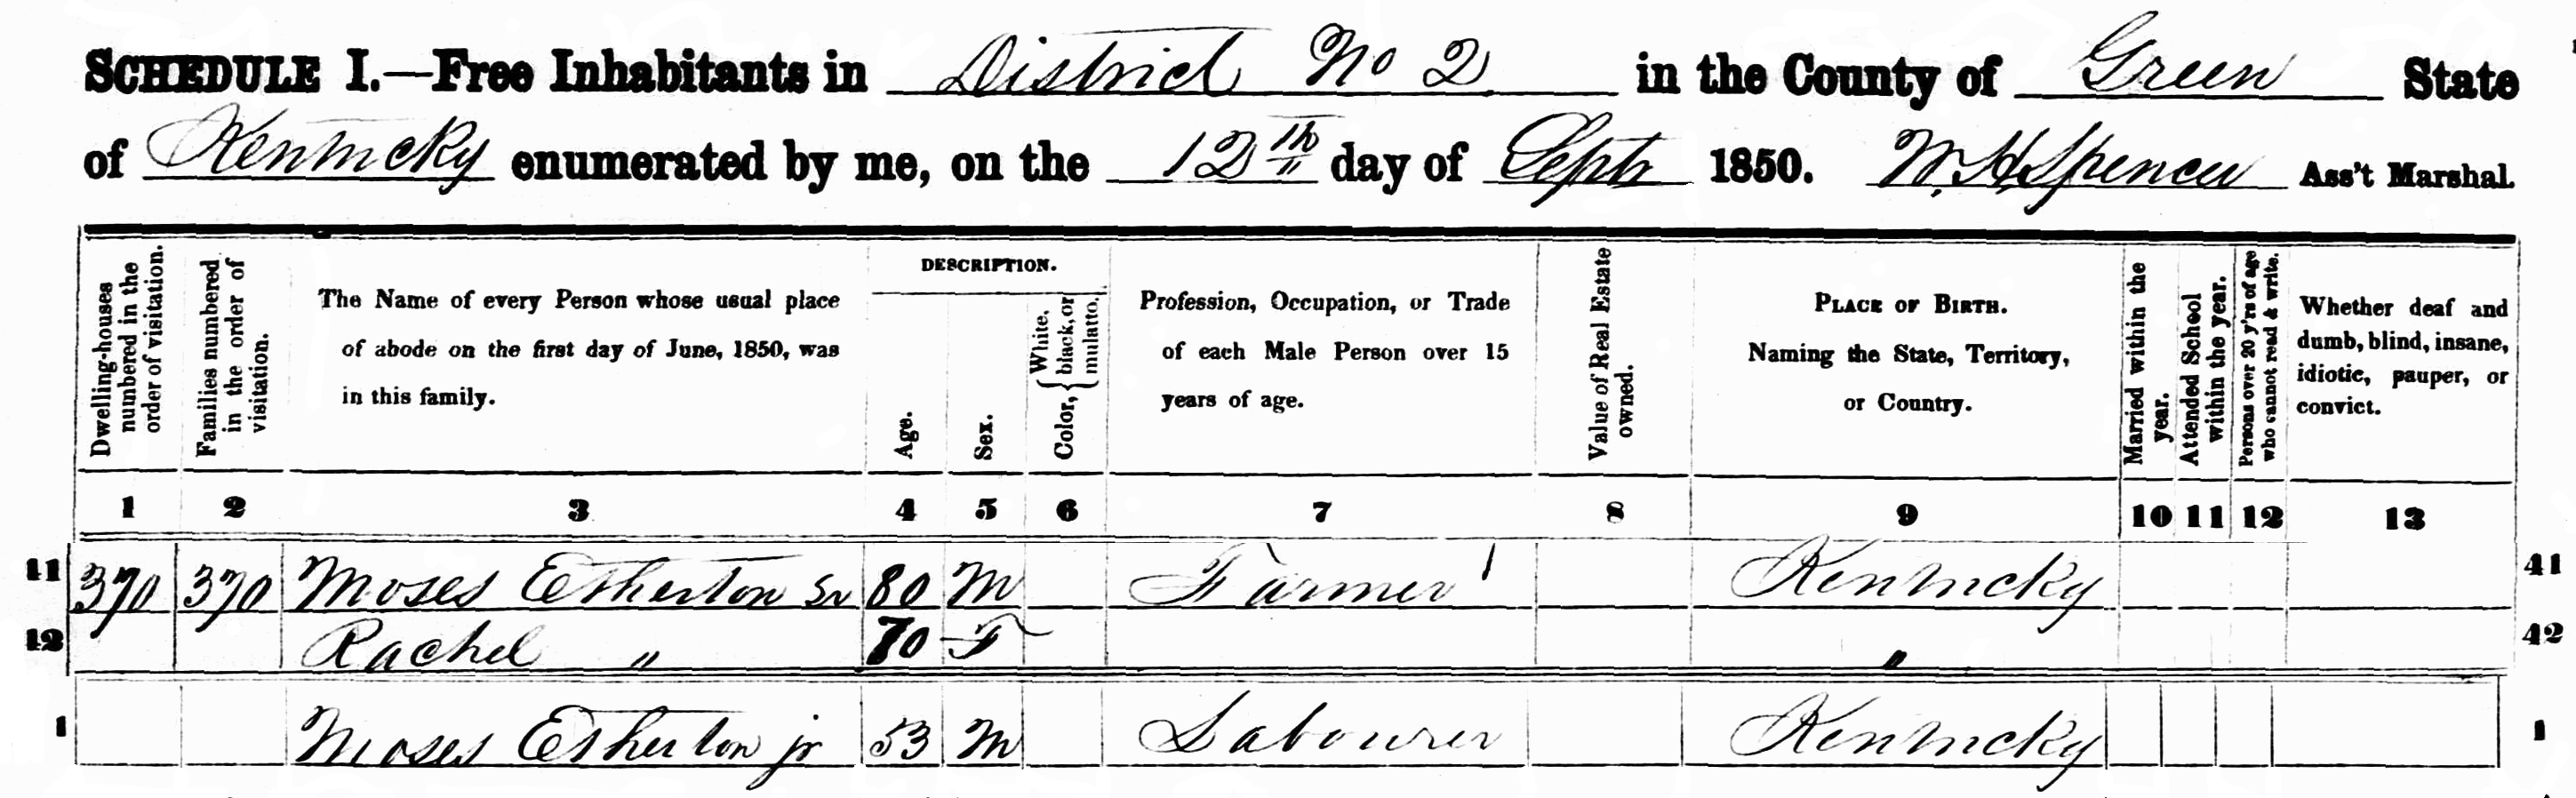 SCHEDULE I.—Free Inhabitants in District No 2 in the County of Green State
of Kentucky enumerated by me, on the 12th day of Septr 1850. W. H. Spencer Ass't Marshal.
Dwelling-houses numbered in the order of visitation.
Families numbered in the order of visitation.
The Name of every Person whose usual place of abode on the first day of June, 1850, was in this family.
DESCRIPTION.
Age.
Sex.
Color, { White, black, or mulatto.
Profession, Occupation, or Trade of each Male Person over 15 years of age.
Value of Real Estate owned.
PLACE OF BIRTH. Naming the State, Territory, or Country.
Married within the year.
Attended School within the year.
Persons over 20 y'rs of age who cannot read & write.
Whether deaf and dumb, blind, insane, idiotic, pauper, or convict.
1 2 3 4 5 6 7 8 9 10 11 12 13
41 370 370 Moses Etherton Sr 80 M Farmer Kentucky 41
42 Rachel " 70 F " 42
1 Moses Etherton jr 53 M Labourer Kentucky 1